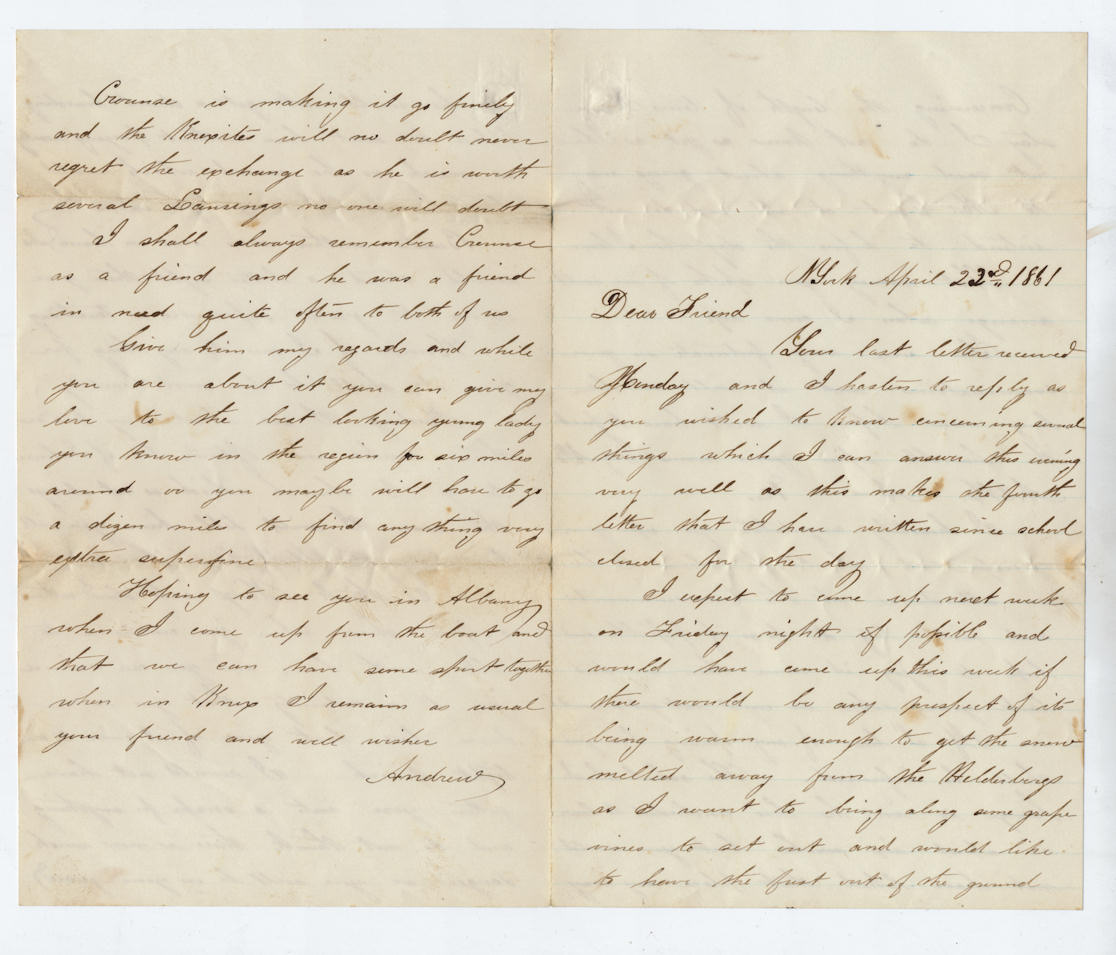 Crounse is making it go finely
and the Knoxites will no doubt never
regret the exchange as he is worth
several Lansings no one will doubt
I shall always remember Crounse
as a friend and he was a friend
in need quite often to both of us
Give him my regards and while
you are about it you can give my
love to the best looking young lady
you know in the region for six miles
around or you maybe will have to go
a dozen miles to find any thing very
extra superfine
Hoping to see you in Albany
when I come up from the boat and
that we can have some sport together
when in Knox I remain as usual
your friend and well wisher
Andrew
N York April 22d 1861
Dear Friend
Your last letter received
Monday and I hasten to reply as
you wished to know concerning several
things which I can answer this evening
very well as this makes the fourth
letter that I have written since school
closed for the day
I expect to come up next week
on Friday night if possible and
would have come up this week if
there would be any prospect of its
being warm enough to get the snow
melted away from the Helderbergs
as I want to bring along some grape
vines to set out and would like
to have the frost out of the ground